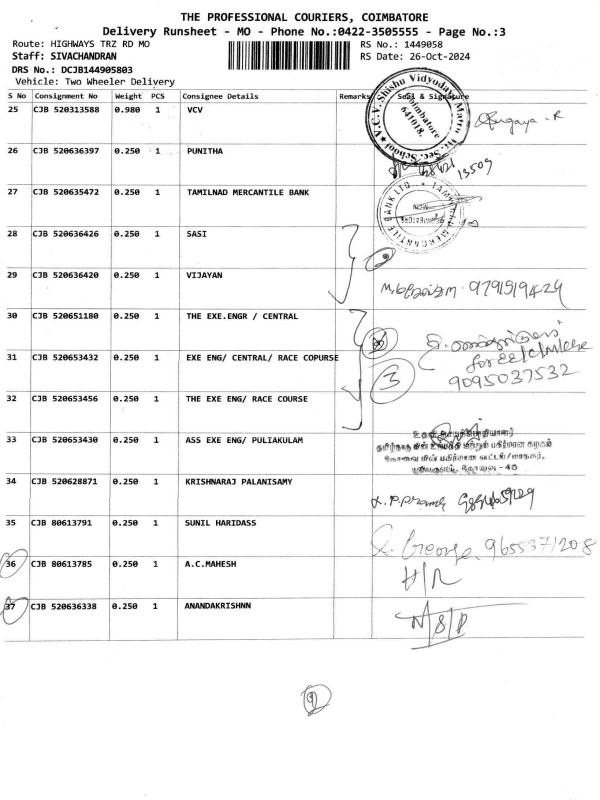 THE PROFESSIONAL COURIERS, COIMBATORE
Delivery Runsheet - MO - Phone No.:0422-3505555 - Page No.:3
Route: HIGHWAYS TRZ RD MO RS No.: 1449058
Staff: SIVACHANDRAN RS Date: 26-Oct-2024
DRS No.: DCJB144905803
Vehicle: Two Wheeler Delivery
S No Consignment No Weight PCS Consignee Details Remarks Seal & Signature
25 CJB 520313588 0.980 1 VCV
V.C.V. Shishu Vidyodaya Matric Hr. Sec. School
Coimbatore
641018.
26 CJB 520636397 0.250 1 PUNITHA
13509
27 CJB 520635472 0.250 1 TAMILNAD MERCANTILE BANK
TAMILNAD MERCANTILE BANK LTD.
28 CJB 520636426 0.250 1 SASI
2
29 CJB 520636420 0.250 1 VIJAYAN
9791519429
30 CJB 520651180 0.250 1 THE EXE.ENGR / CENTRAL
31 CJB 520653432 0.250 1 EXE ENG/ CENTRAL/ RACE COPURSE
3
9095037532
32 CJB 520653456 0.250 1 THE EXE ENG/ RACE COURSE
33 CJB 520653430 0.250 1 ASS EXE ENG/ PULIAKULAM
தமிழ்நாடு மின் உற்பத்தி மற்றும் பகிர்மான கழகம்
கோவை மின் பகிர்மான வட்டம்/மாநகர்,
கோவை - 45
34 CJB 520628871 0.250 1 KRISHNARAJ PALANISAMY
35 CJB 80613791 0.250 1 SUNIL HARIDASS
George 9655371208
36 CJB 80613785 0.250 1 A.C.MAHESH
H/R
37 CJB 520636338 0.250 1 ANANDAKRISHNN
N/S/P
9